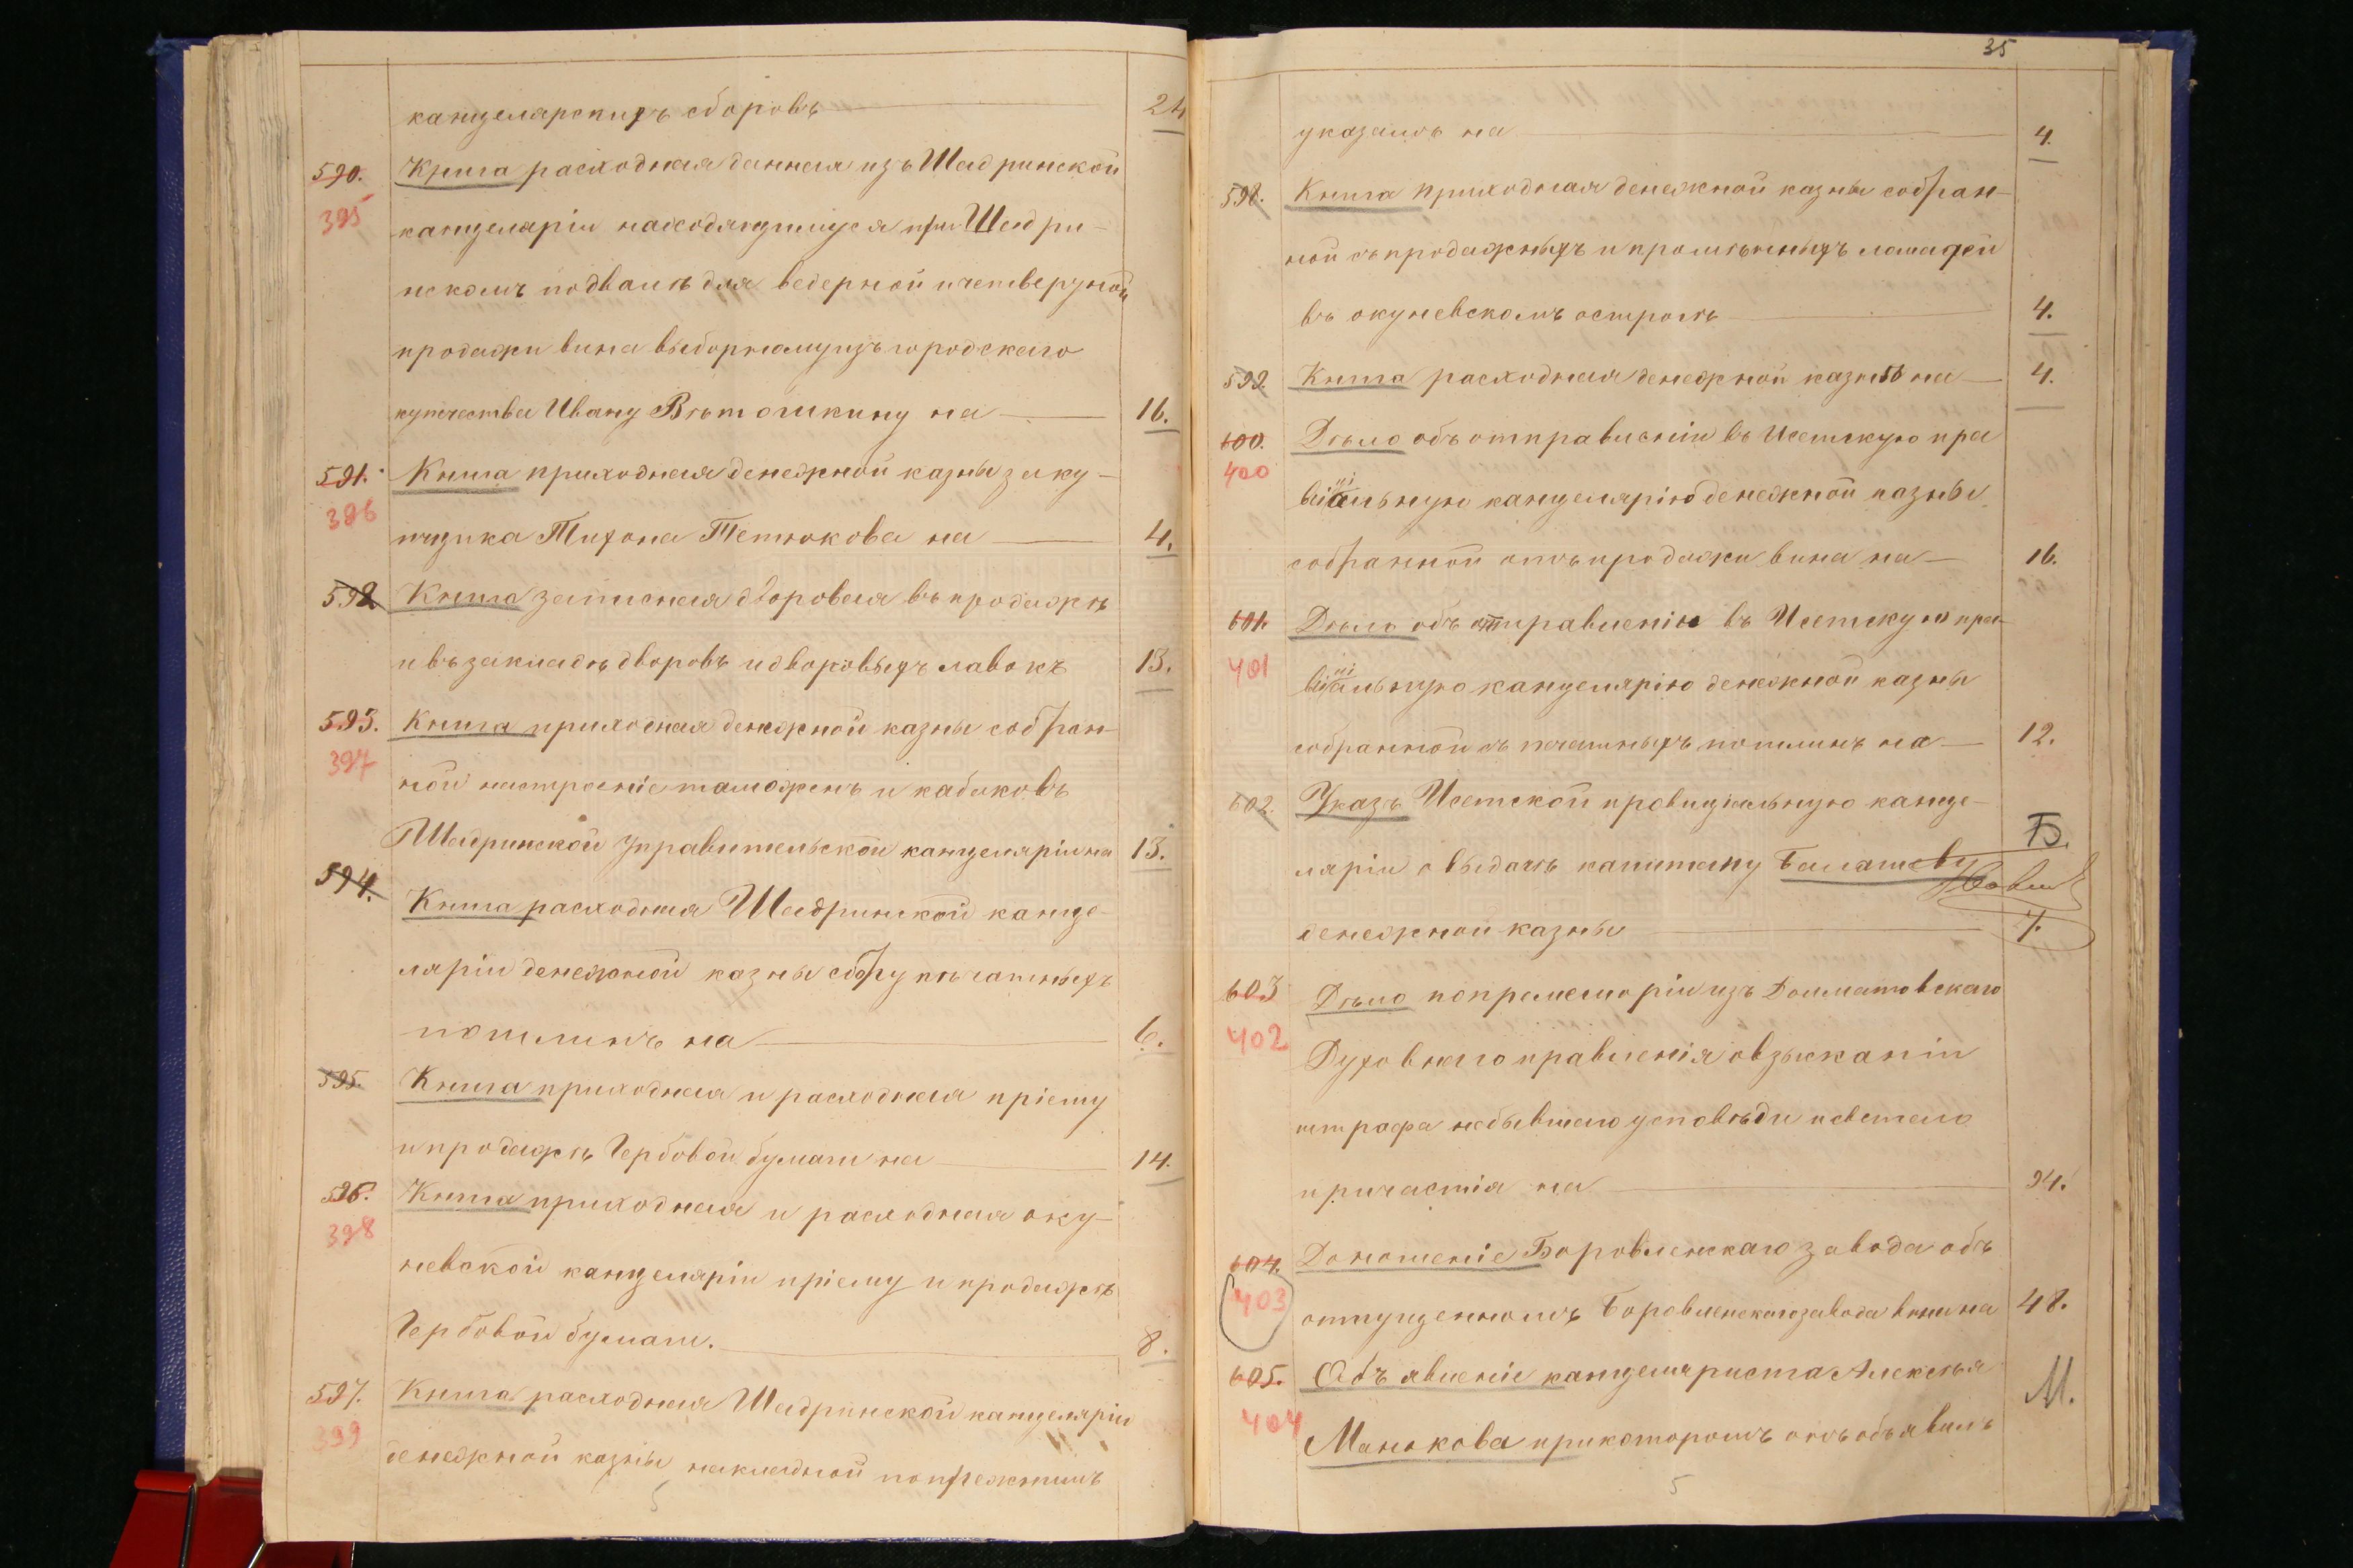 канцелярскихъ сборовъ 24
590. Книга расходная данная изъ Шадринской
395 канцеляріи находящимуся при Шадри-
нскомъ подвалѣ для ведерной и четверуной
продажи вина выборному изъ городскаго
купечества Ивану Вѣтошкину на 16.
591. Книга приходная денежной казны заку-
396 пщика Тихона Тетюкова на 4.
592 Книга записная дворовая въ продажѣ
и въ закладѣ дворовъ и дворовыхъ лавокъ 13.
593. Книга приходная денежной казны собран-
397 ной настроеніе таможенъ и кабаковъ
Шадринской Управительской канцеляріи на 13.
594. Книга расходная Шадринской канце-
ляріи денежной казны сбору печатныхъ
пошлинъ на 6.
595. Книга приходная и расходная пріему
и продажѣ Гербовой бумаги на 14.
596. Книга приходная и расходная оку-
398 невской канцеляріи пріему и продажѣ
Гербовой бумаги. 8.
597. Книга расходная Шадринской канцеляріи
399 денежной казны накладной по прежнимъ
5
35
указамъ на 4.
598. Книга приходная денежной казны собран-
ной съ продажныхъ и промѣнныхъ лошадей
въ окуневскомъ острогѣ 4.
599. Книга расходная денежной казны на 4.
600. Дѣло объ отправленіи въ Исетскую про
400 винціальную канцелярію денежной казны
собранной отъ продажи вина на 16.
601. Дѣло объ отправленіи въ Исетскую про-
401 винціальную канцелярію денежной казны
собранной съ печатныхъ пошлинъ на 12.
602. Указъ Исетской провинціальную канце-
ляріи о выдачѣ капитану Балашеву Б.
денежной казны 7.
603 Дѣло по промеморіи изъ Долматовскаго
402 Духовнаго правленія о взысканіи
штрафа небывшаго усповѣди и светаго
причастія на 94.
604. Доношеніе Боровленскаго завода объ
403 отпущенномъ Боровленскаго завода вина на 48.
605. Объявленіе канцеляриста Алексѣя М.
404 Манокова при которомъ онъ объявилъ
5